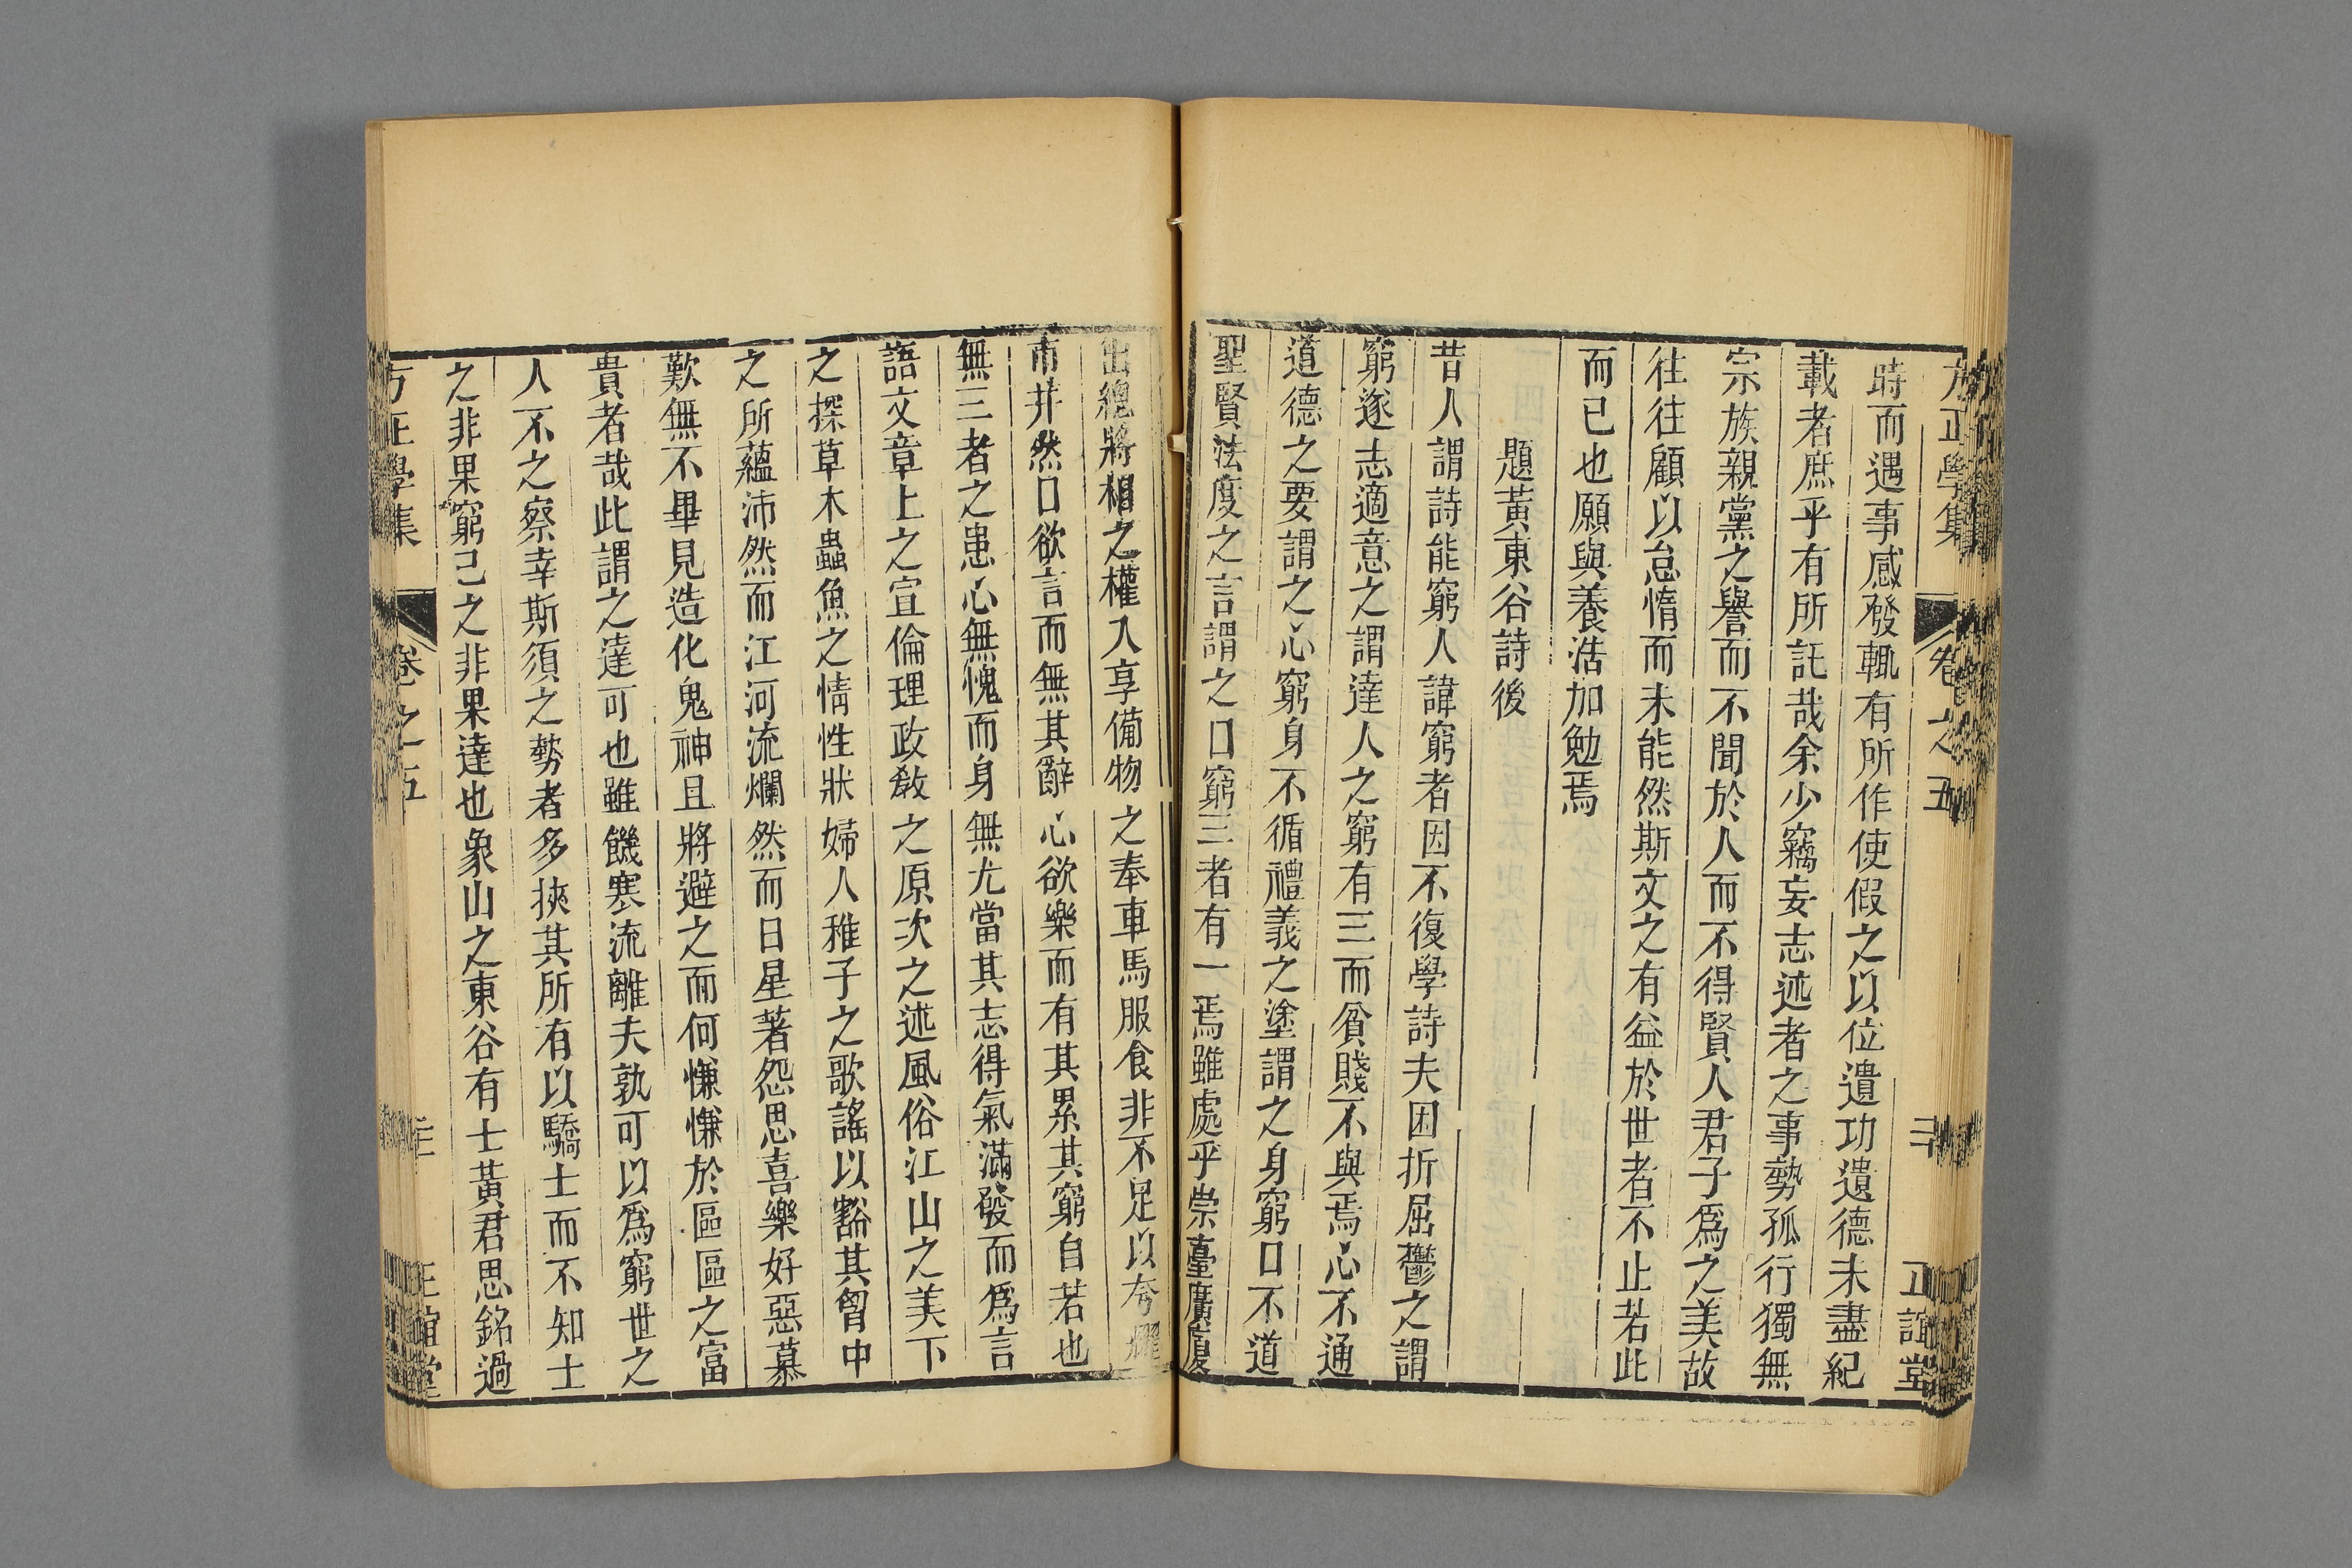 方正學集 卷之五 二十 正誼堂
時而遇事感發輒有所作使假之以位遺功遺德未盡紀
載者庶乎有所託哉余少竊妄志述者之事勢孤行獨無
宗族親黨之譽而不聞於人而不得賢人君子爲之美故
往往顧以怠惰而未能然斯文之有益於世者不止若此
而已也願與養浩加勉焉
題黃東谷詩後
昔人謂詩能窮人諱窮者因不復學詩夫困折屈鬱之謂
窮遂志適意之謂達人之窮有三而貧賤不與焉心不通
道德之要謂之心窮身不循禮義之塗謂之身窮口不道
聖賢法度之言謂之口窮三者有一焉雖處乎崇臺廣廈
出總將相之權入享備物之奉車馬服食非不足以夸耀
市井然口欲言而無其辭心欲樂而有其累其窮自若也
無三者之患心無愧而身無尤當其志得氣滿發而爲言
語文章上之宣倫理政教之原次之述風俗江山之美下
之探草木蟲魚之情性狀婦人稚子之歌謠以豁其胷中
之所蘊沛然而江河流爛然而日星著怨思喜樂好惡慕
歎無不畢見造化鬼神且將避之而何慊慊於區區之富
貴者哉此謂之達可也雖饑寒流離夫孰可以爲窮世之
人不之察幸斯須之勢者多挾其所有以驕士而不知士
之非果窮己之非果達也象山之東谷有士黃君思銘過
方正學集 卷之五 正誼堂